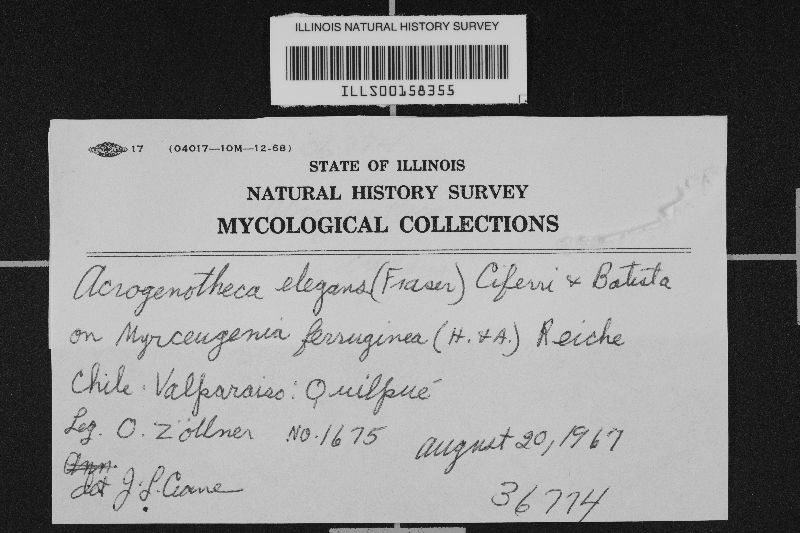 ILLINOIS NATURAL HISTORY SURVEY
ILLS00158355
17 (04017—10M—12-68)
STATE OF ILLINOIS
NATURAL HISTORY SURVEY
MYCOLOGICAL COLLECTIONS
Acrogenotheca elegans (Fraser) Ciferri & Batista
on Myrceugenia ferruginea (H. & A.) Reiche
Chile: Valparaiso: Quilpué
Leg. O. Zöllner No. 1675 August 20, 1967
Ann.
det J. L. Crane
36774